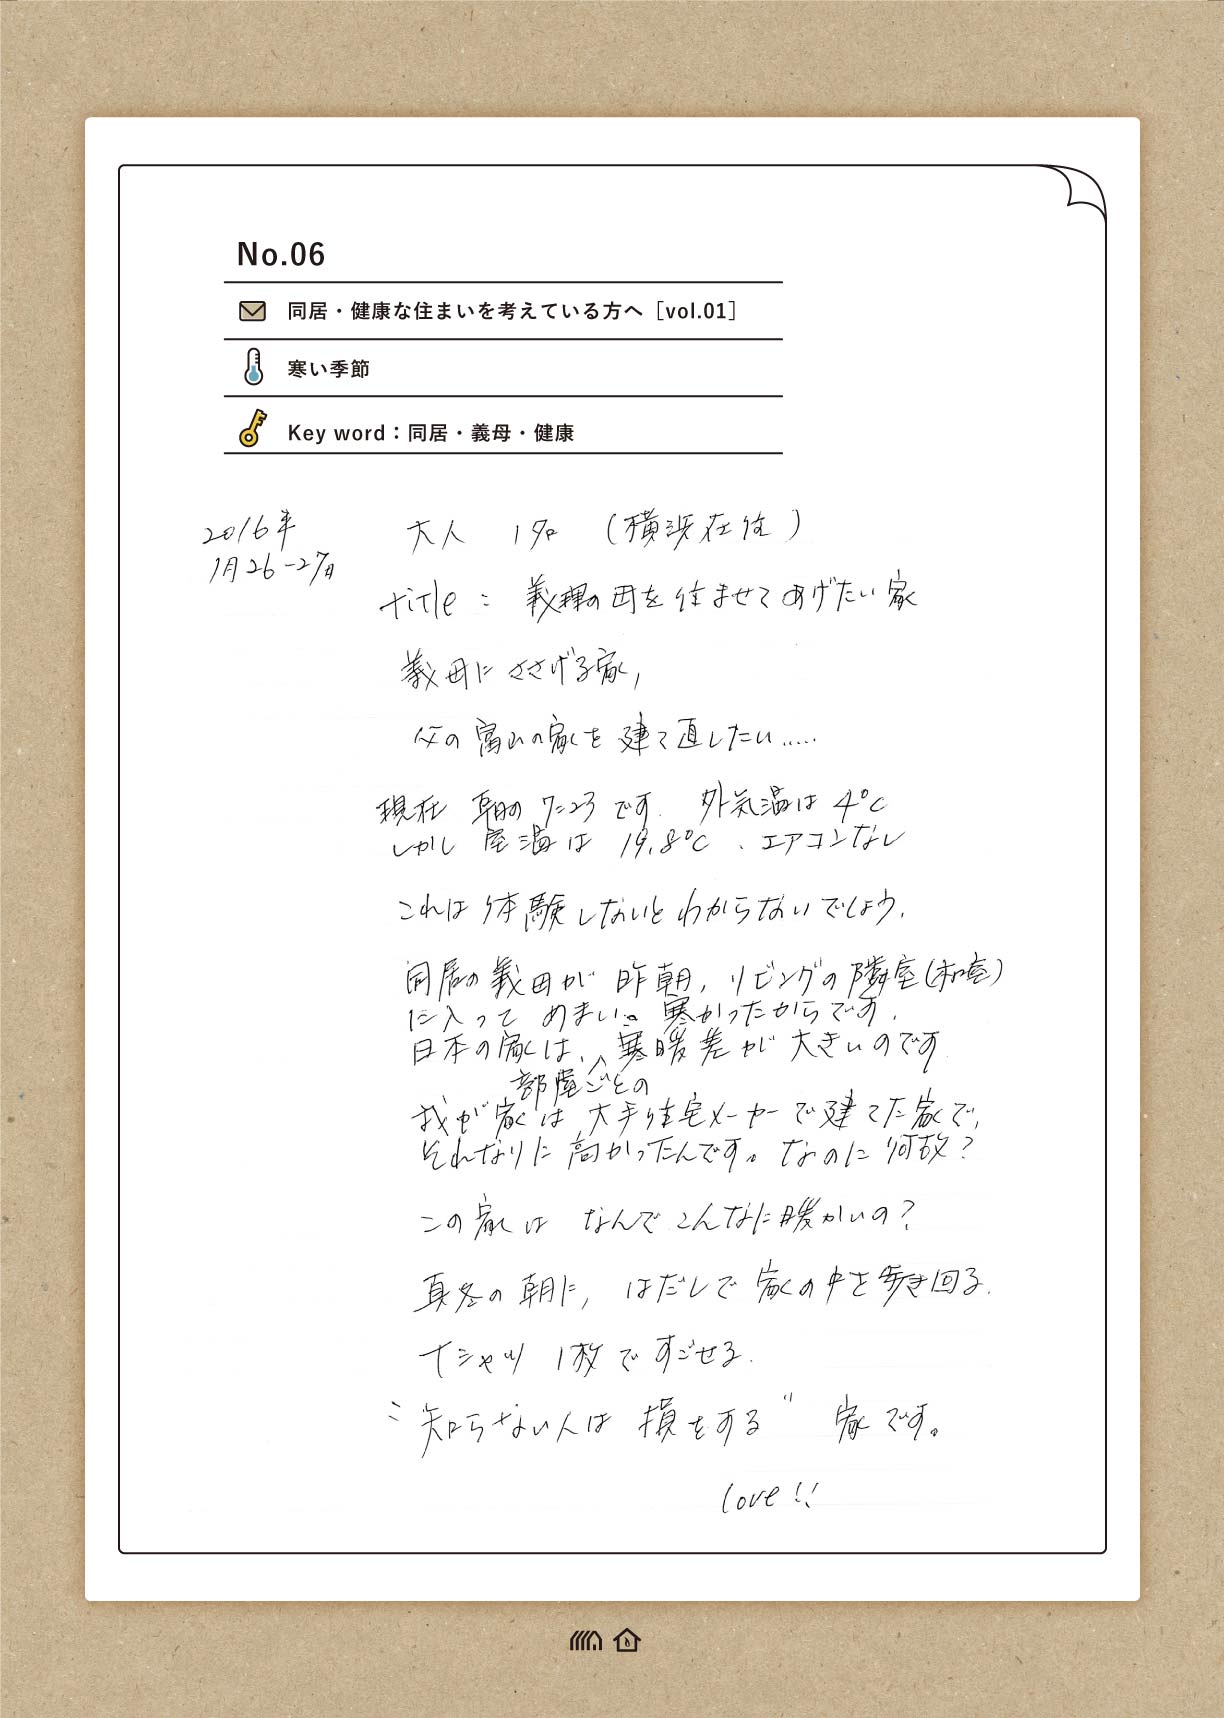 No.06
同居・健康な住まいを考えている方へ［vol.01］
寒い季節
Key word：同居・義母・健康
2016年
1月26-27日
大人 1名 (横浜在住)
title : 義理の母を住ませてあげたい家
義母にささげる家,
父の富山の家を建て直したい.....
現在 朝の7:23です. 外気温は4℃
しかし 室温は 19.8℃、エアコンなし
これは体験しないとわからないでしょう.
同居の義母が昨朝, リビングの隣室(和室)
に入って めまい。寒かったからです.
日本の家は、部屋ごとの寒暖差が大きいのです
我が家は大手住宅メーカーで建てた家で,
それなりに高かったんです。なのに何故?
この家は なんでこんなに暖かいの?
真冬の朝に, はだしで家の中を歩き回る.
Tシャツ 1枚ですごせる.
"知らない人は損をする" 家です。
love!!